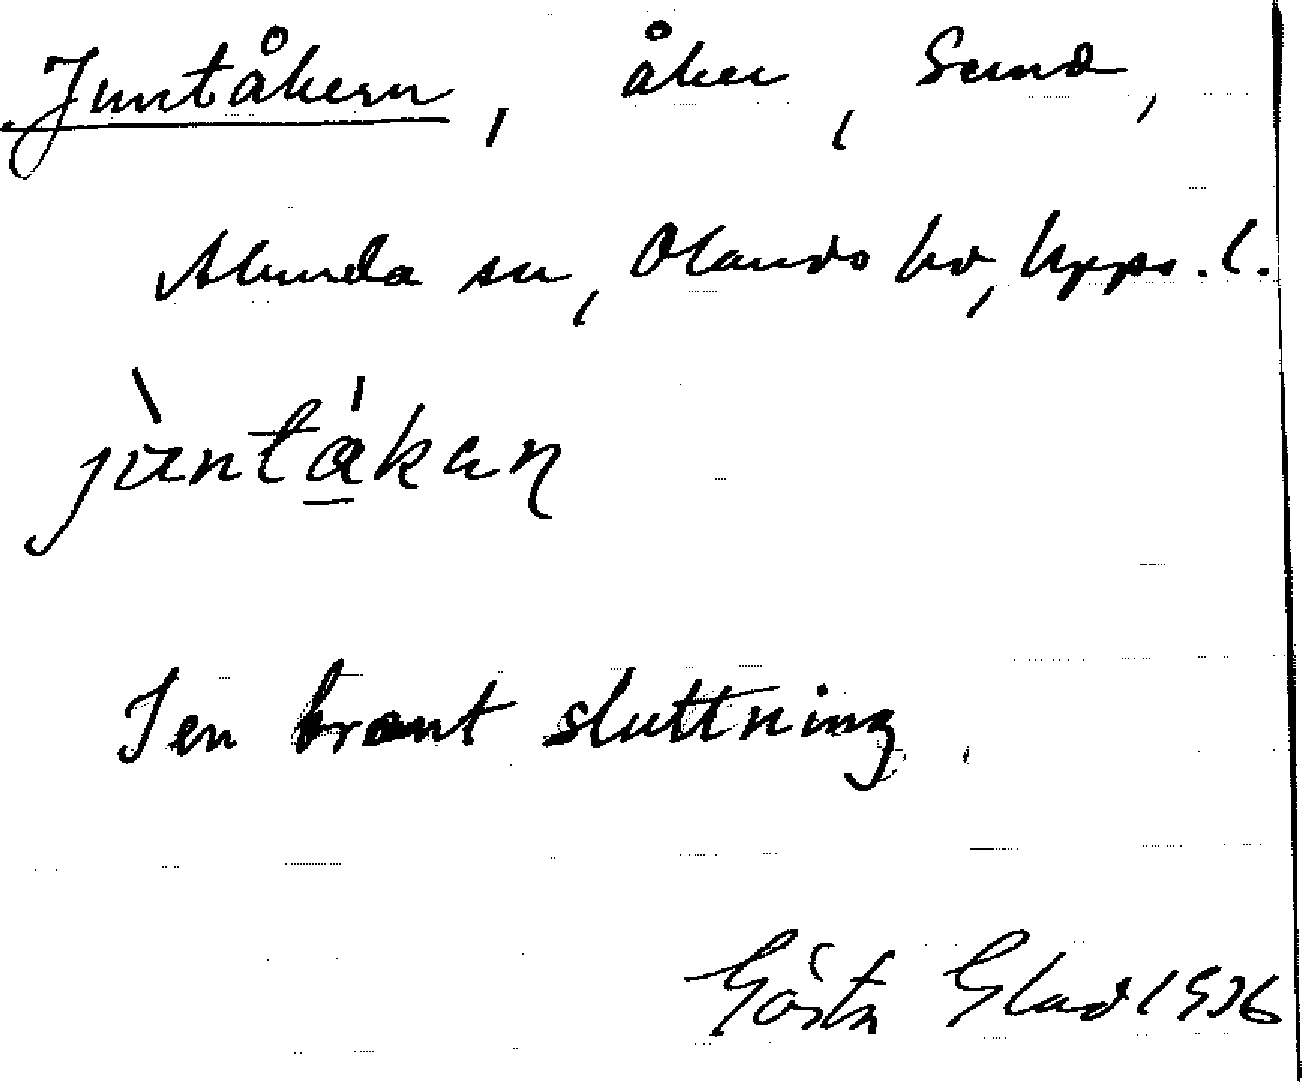 Juntåkern, åker, Sund,
Alunda sn, Olands hd, Upps. l.
jùntákan
I en brant sluttning.
Gösta Glad 1936